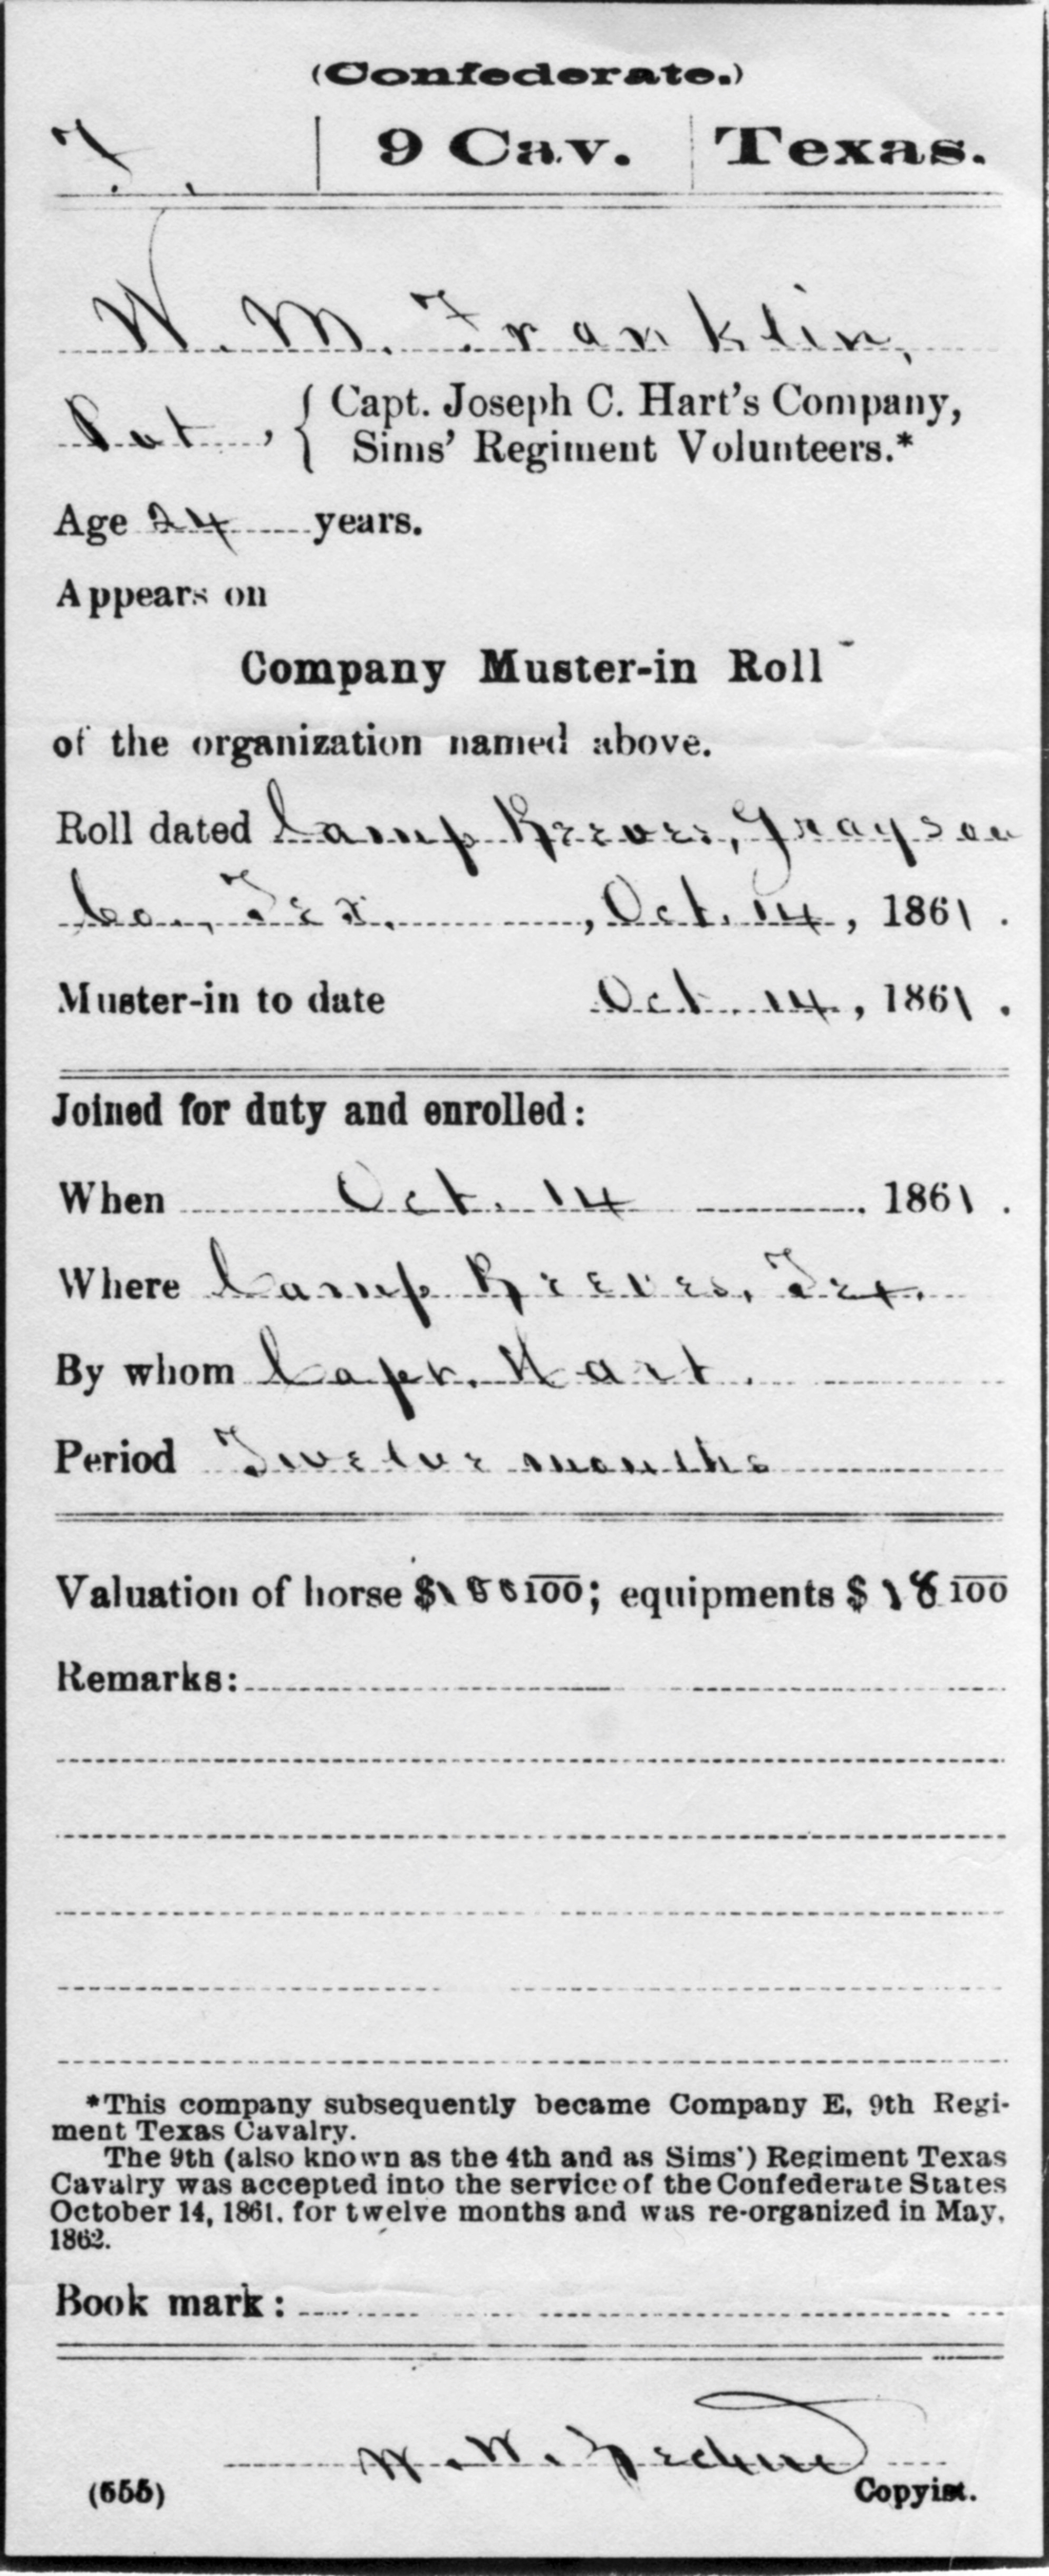 (Confederate.)
F. | 9 Cav. | Texas.
W. M. Franklin,
Pvt, { Capt. Joseph C. Hart's Company,
Sims' Regiment Volunteers.*
Age 24 years.
Appears on
Company Muster-in Roll
of the organization named above.
Roll dated Camp Reeves, Grayson
Co., Tex., Oct. 14, 1861.
Muster-in to date Oct. 14, 1861.
Joined for duty and enrolled:
When Oct. 14 1861.
Where Camp Reeves, Tex.
By whom Capt. Hart.
Period Twelve months
Valuation of horse $ 100; equipments $18 100
Remarks:
*This company subsequently became Company E, 9th Regi-
ment Texas Cavalry.
The 9th (also known as the 4th and as Sims') Regiment Texas
Cavalry was accepted into the service of the Confederate States
October 14, 1861, for twelve months and was re-organized in May,
1862.
Book mark:
W. W.
(655) Copyist.